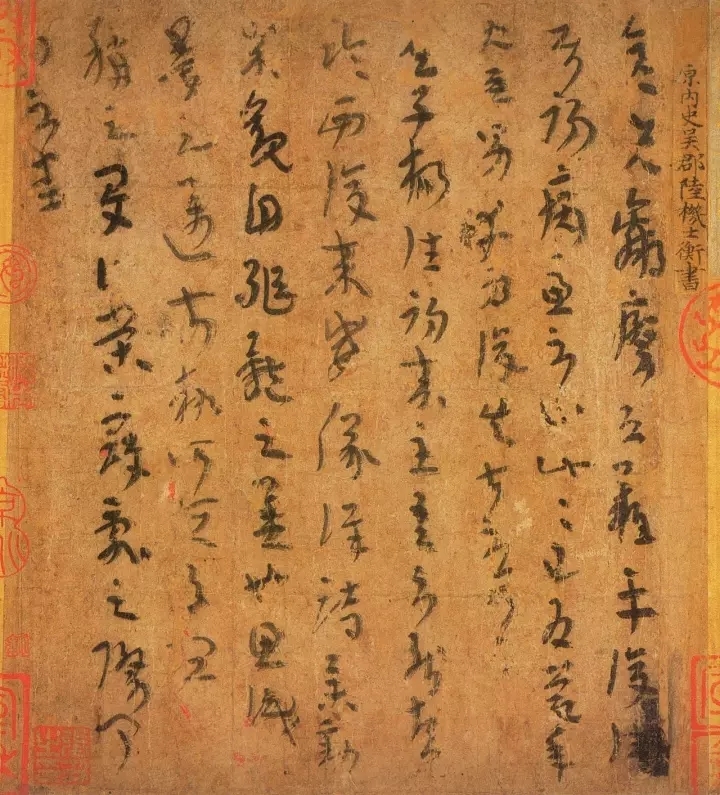 原內史吳郡陸機士衡書
彥先羸瘵恐難平復往
屬初病慮不止此此已為慶承
使唯男幸為復失前憂耳
子楊往初來主吾不能盡
臨西復來威儀詳跱舉動
成觀自軀體之美也思識
量之邁前執所恆有宜
稱之夏伯榮寇亂之際聞
問不悉